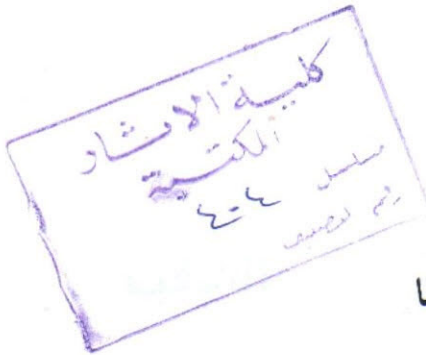 كلية الارشاد
المكتبة
مسلسل ٤٠٤
رقم التصنيف